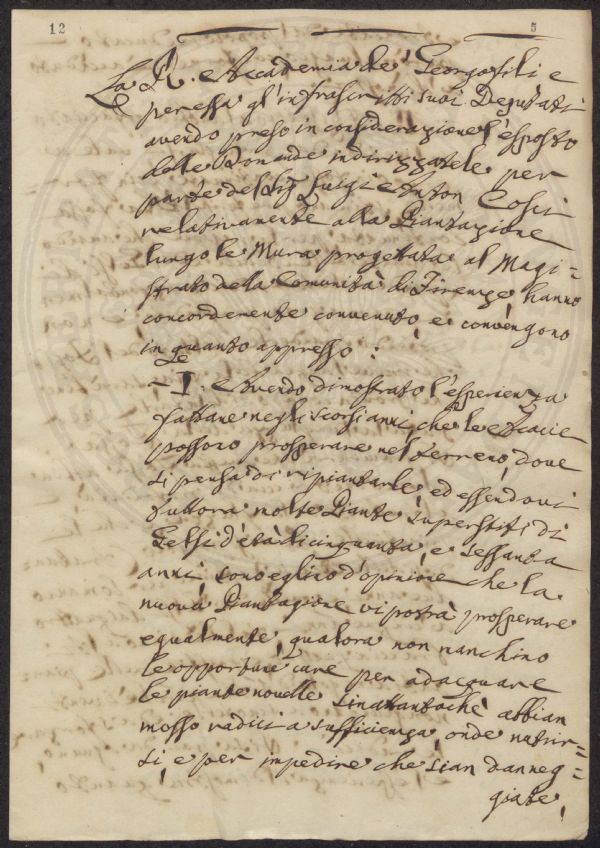 12
5
La R. Accademia de' Georgofili e
per essa gl'infrascritti suoi Deputati
avendo preso in considerazione l'esposto
dalle Domande indirizzatele per
parte del Sig Luigi Anton Cosci
relativamente alla Piantazione
lungo le Mura progettata al Magi=
strato della Comunità di Firenze, hanno
concordemente convenuto, e convengono
in quanto appresso:
I. Avendo dimostrato l'esperienza
fattane negli scorsi anni, che le Acacie
possono prosperare nel Terreno, dove
si pensa di ripiantarle, ed essendovi
tuttora molte Piante superstiti di
Gelsi d'età di cinquanta, e sessanta
anni, sono eglino d'opinione che la
nuova Piantagione vi potrà prosperare
egualmente, qualora non manchino
le opportune cure per adacquare
le piante novelle sinattantoché abbian
messo radici a sufficienza, onde nutrir=
si, e per impedire che sian danneg=
giate,